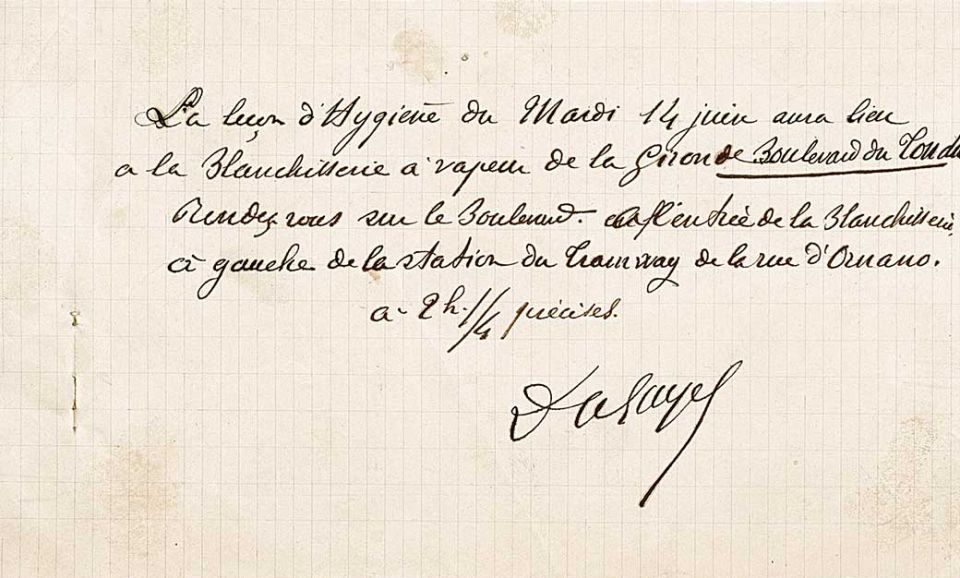 La leçon d'Hygiène du Mardi 14 juin aura lieu
a la Blanchisserie à vapeur de la Gironde Boulevard du Tondu
Rendez vous sur le Boulevard. à l'entrée de la Blanchisserie,
à gauche de la station du Tramway de la rue d'Ornano.
a 2h. 1/4 précises.